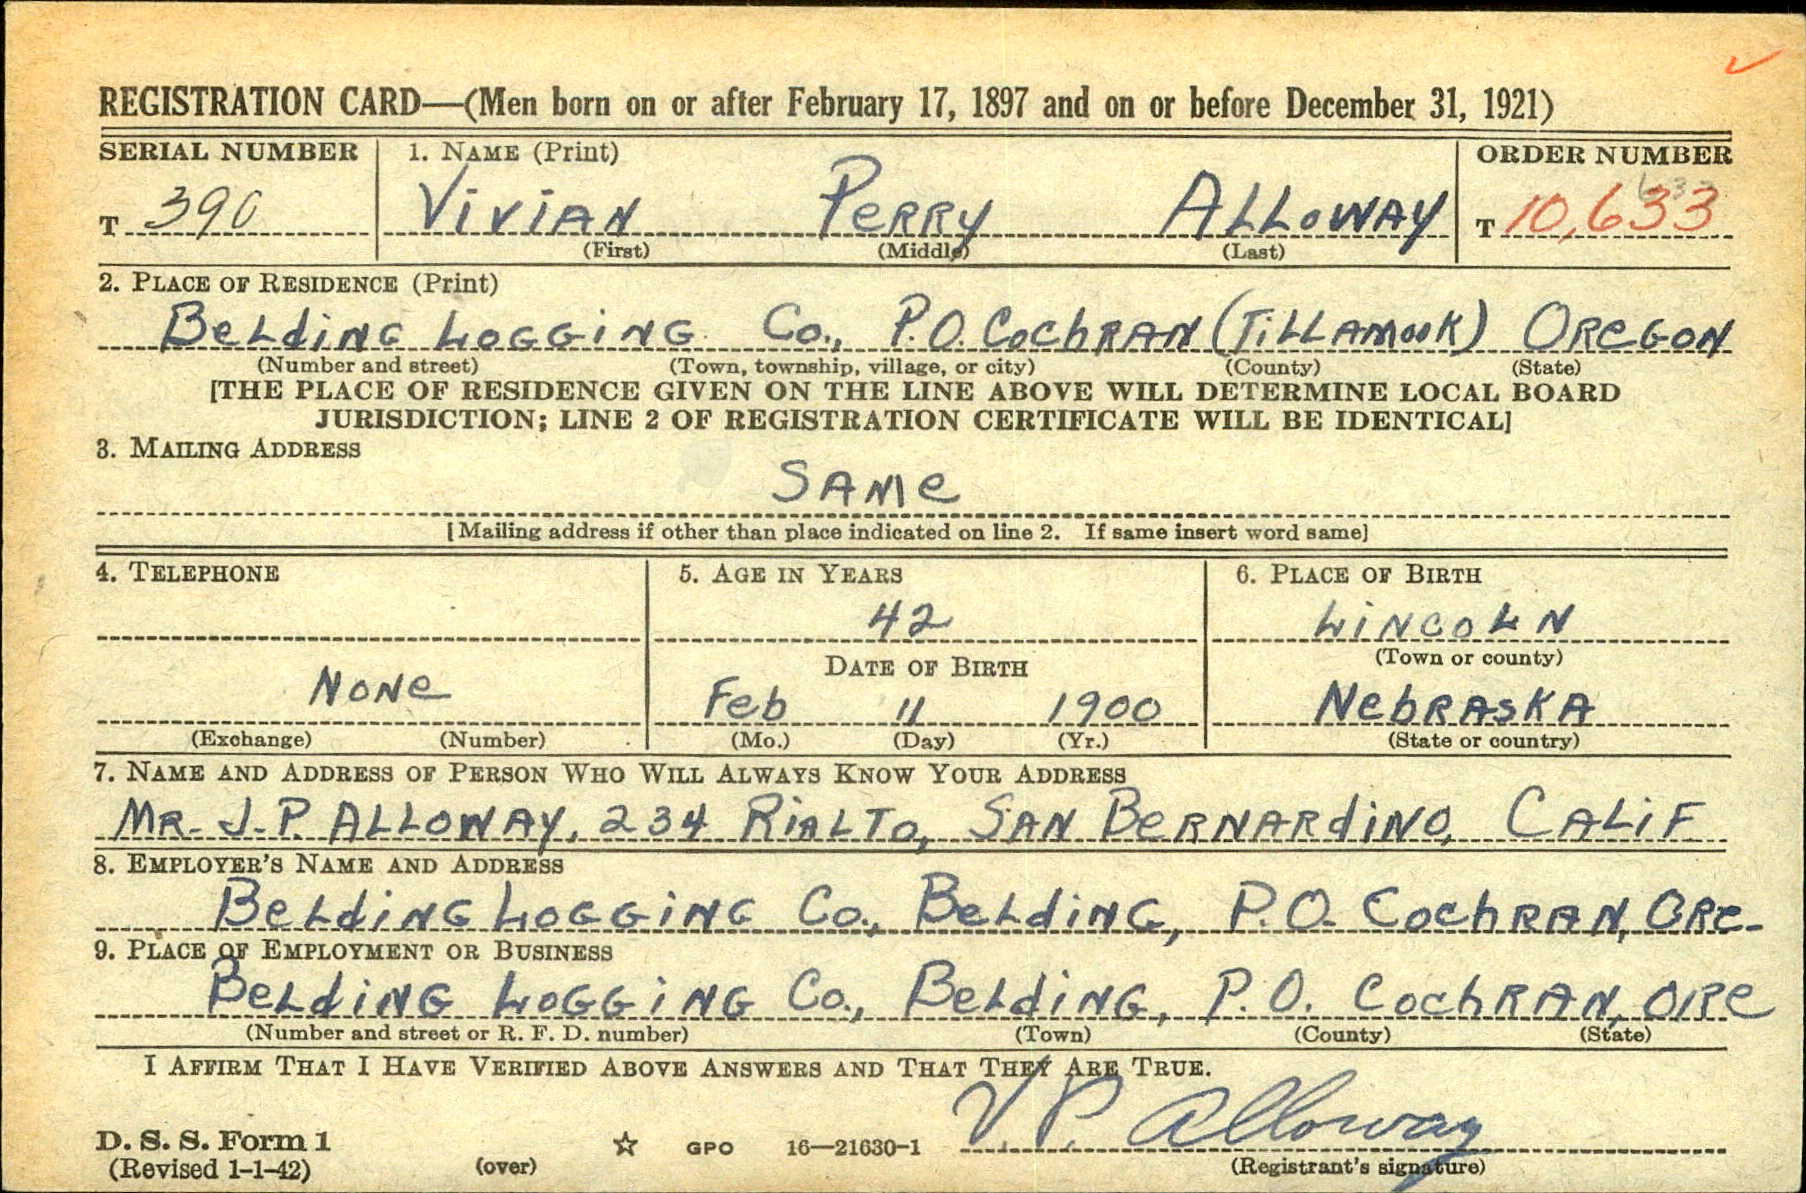 REGISTRATION CARD—(Men born on or after February 17, 1897 and on or before December 31, 1921)
SERIAL NUMBER 1. NAME (Print) ORDER NUMBER
T 390 ViViAN PeRRy ALLoWAY T 10,633
(First) (Middle) (Last)
2. PLACE OF RESIDENCE (Print)
BeLdiNG LOGGiNG Co., P.O. CochRAN (TiLLAMooK) OReGON
(Number and street) (Town, township, village, or city) (County) (State)
[THE PLACE OF RESIDENCE GIVEN ON THE LINE ABOVE WILL DETERMINE LOCAL BOARD
JURISDICTION; LINE 2 OF REGISTRATION CERTIFICATE WILL BE IDENTICAL]
3. MAILING ADDRESS
SAMe
[Mailing address if other than place indicated on line 2. If same insert word same]
4. TELEPHONE 5. AGE IN YEARS 6. PLACE OF BIRTH
42 LiNCOLN
DATE OF BIRTH (Town or county)
NONe Feb 11 1900 NebRASKA
(Exchange) (Number) (Mo.) (Day) (Yr.) (State or country)
7. NAME AND ADDRESS OF PERSON WHO WILL ALWAYS KNOW YOUR ADDRESS
MR. J.P. ALLOWAY, 234 RiALTo, SAN BeRNARdiNO, CALiF
8. EMPLOYER'S NAME AND ADDRESS
BeLdiNG LOGGiNG Co., BeLdiNG, P.O. CochRAN, ORe.
9. PLACE OF EMPLOYMENT OR BUSINESS
BeLdiNG LOGGiNG Co., BeLdiNG, P.O. CochRAN, ORe
(Number and street or R. F. D. number) (Town) (County) (State)
I AFFIRM THAT I HAVE VERIFIED ABOVE ANSWERS AND THAT THEY ARE TRUE.
V P. Alloway
D. S. S. Form 1 ☆ GPO 16—21630-1
(Revised 1-1-42) (over) (Registrant's signature)